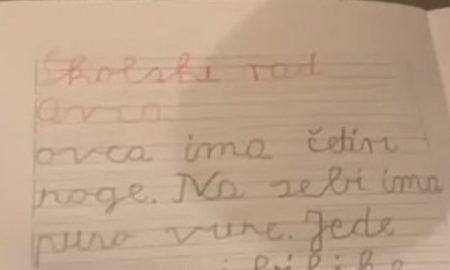 Školski rad
Ovca
ovca ima četiri
noge. Na sebi ima
puno vune. Jede